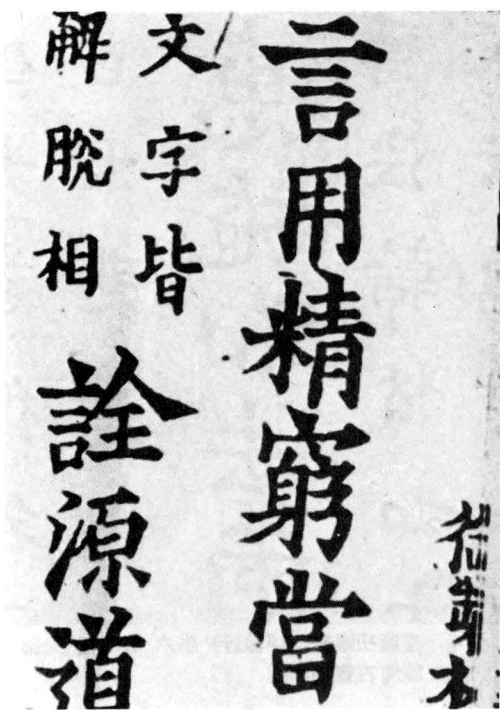 言用精窮當
文字皆
解脱相
詮源道